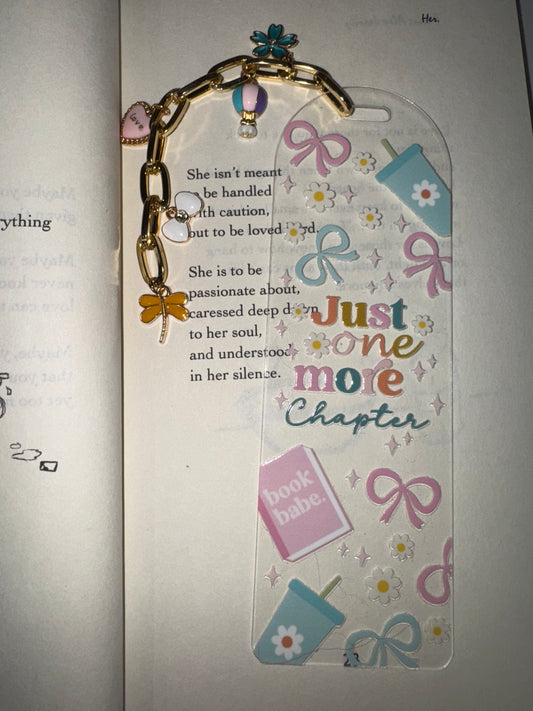 Her.
ything
She isn't meant
be handled
with caution,
but to be loved hard.
She is to be
passionate about,
caressed deep down
to her soul,
and understood
in her silence.
love
Just
one
more
Chapter
book
babe.